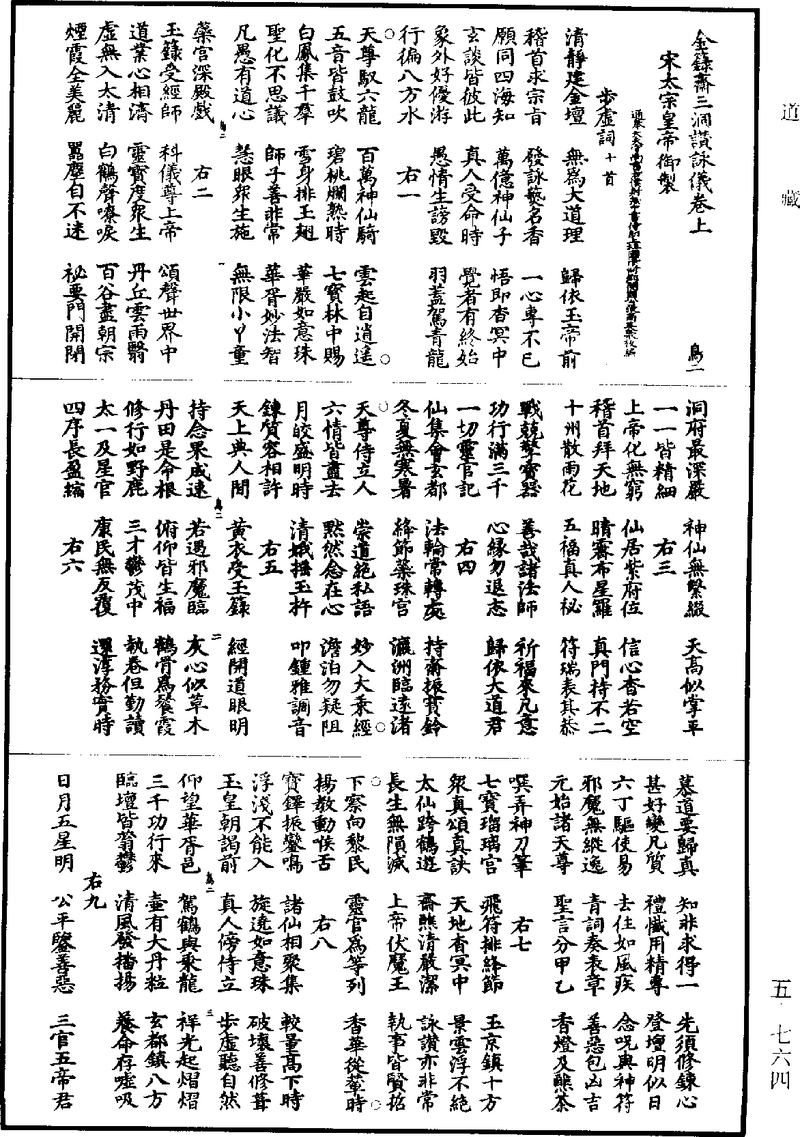 道藏
金籙齋三洞讚詠儀卷上
鳥二
宋太宗皇帝御製
步虛詞十首
清靜建金壇　無爲大道理　歸依玉帝前
稽首求宗旨　發詠爇名香　一心專不已
願同四海知　萬億神仙子　悟卽杳冥中
玄談皆彼此　真人受命時　覺者有終始
象外好優游　愚情生謗毀　羽蓋駕青龍
行徧八方水
右一
天尊馭六龍　百萬神仙騎　雲起自逍遥
五音皆鼓吹　碧桃爛熟時　七寶林中賜
白鳳集千羣　雪身排玉翅　華嚴如意珠
聖化不思議　師子善非常　華胥妙法智
凡愚有道心　慧眼衆生施　無限小丫童
蘂宫深殿戲
右二
玉籙受經師　科儀尊上帝　頌聲世界中
道業心相濟　靈寶度衆生　丹丘雲雨翳
虛無入太清　白鶴聲嘹唳　百谷盡朝宗
煙霞全美麗　嚚塵自不迷　祕要門開閉
洞府最深嚴　神仙無繫綴　天高似掌平
一一皆精細
右三
上帝化無窮　仙居紫府位　信心杳若空
稽首拜天地　晴霽布星羅　真門持不二
十州散雨花　五福真人祕　符瑞表其恭
戰兢擎寶器　善哉諸法師　祈福來凡意
功行滿三千　心緣勿退志　歸依大道君
一切靈官記
右四
仙集會玄都　法輪常轉處　持齋振寶鈴
冬夏無寒暑　絳節蘂珠宫　瀛洲臨遠渚
天尊侍立人　崇道絶私語　妙入大乘經
六情皆盡去　默然念在心　澹泊勿疑阻
月皎盛明時　清娥搖玉杵　叩鍾雅調音
鍊質容相許
右五
天上與人間　黃衣受玉籙　經開道眼明
持念果成速　若遇邪魔臨　灰心似草木
丹田是命根　俯仰皆生福　鶴骨爲餐霞
修行如野鹿　三才鬱茂中　執卷但勤讀
太一及星官　康民無反覆　還淳務實時
四序長盈縮
右六
慕道要歸真　知非求得一　先須修鍊心
甚好變凡質　禮懺用精專　登壇明似日
六丁驅使易　去住如風疾　念呪與神符
邪魔無縱逸　青詞奏表章　善惡包凶吉
元始諸天尊　聖言分甲乙　香燈及醮茶
噀弄神刀筆
右七
七寶瑠璃宫　飛符排絳節　玉京鎮十方
衆真頌真訣　天地杳冥中　景雲浮不絶
太仙跨鶴遊　齋醮清嚴潔　詠讚亦非常
長生無隕滅　上帝伏魔王　執事皆賢哲
下察向黎民　靈官爲等列　香華從輦時
揚教動喉舌
右八
寶鐸振鑾鳴　諸仙相聚集　較量高下時
浮淺不能入　旋遶如意珠　破壞善修葺
玉皇朝謁前　真人傍侍立　步虛聽自然
仰望華胥邑　駕鶴與乘龍　祥光起熠熠
三千功行來　壷有大丹粒　玄都鎮八方
臨壇皆蓊鬱　清風發播揚　養命存噓吸
右九
日月五星明　公平鑒善惡　三官五帝君
五·七六四